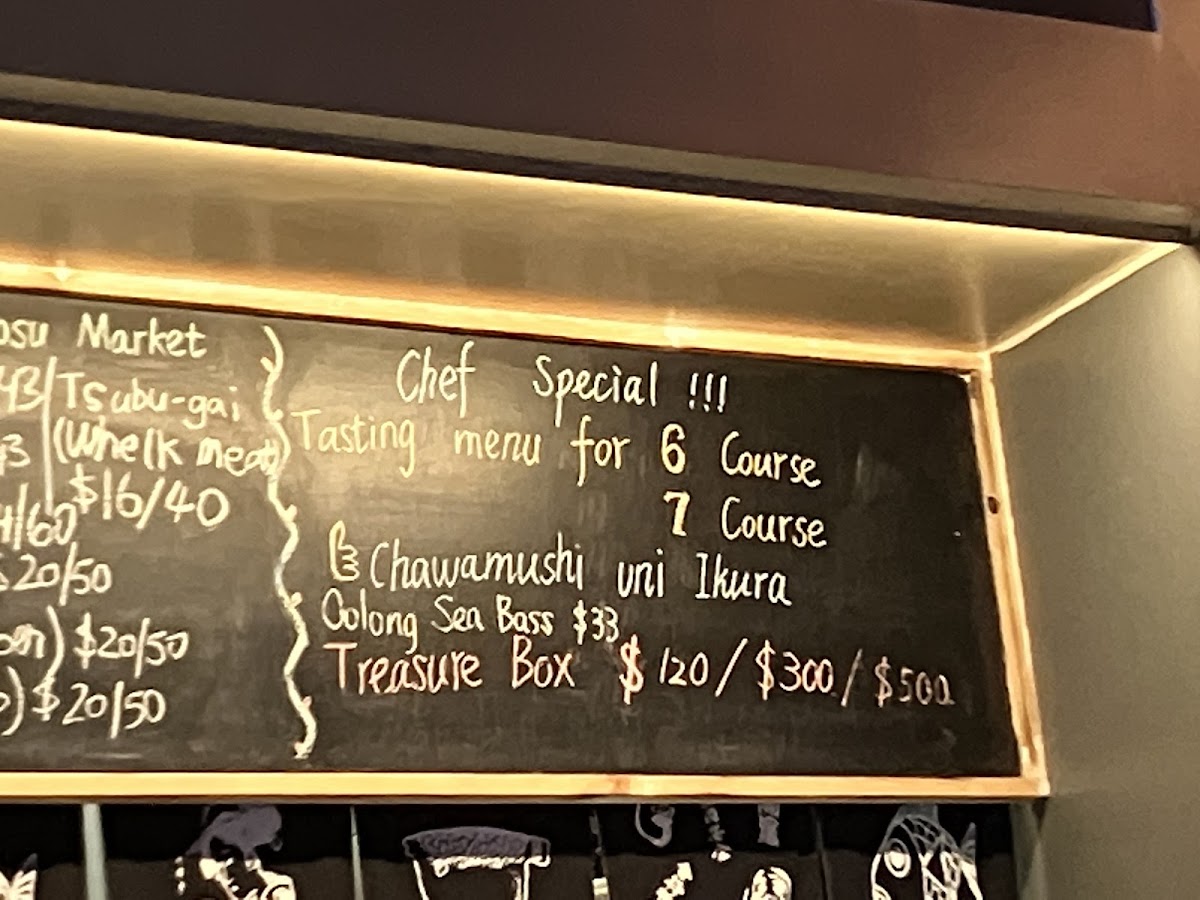 Market
Tsubu-gai
(Whelk meat)
$16/40
$20/50
$20/50
$20/50
Chef Special !!!
Tasting menu for 6 Course
7 Course
Chawamushi uni Ikura
Oolong Sea Bass $33
Treasure Box $120/$300/$500